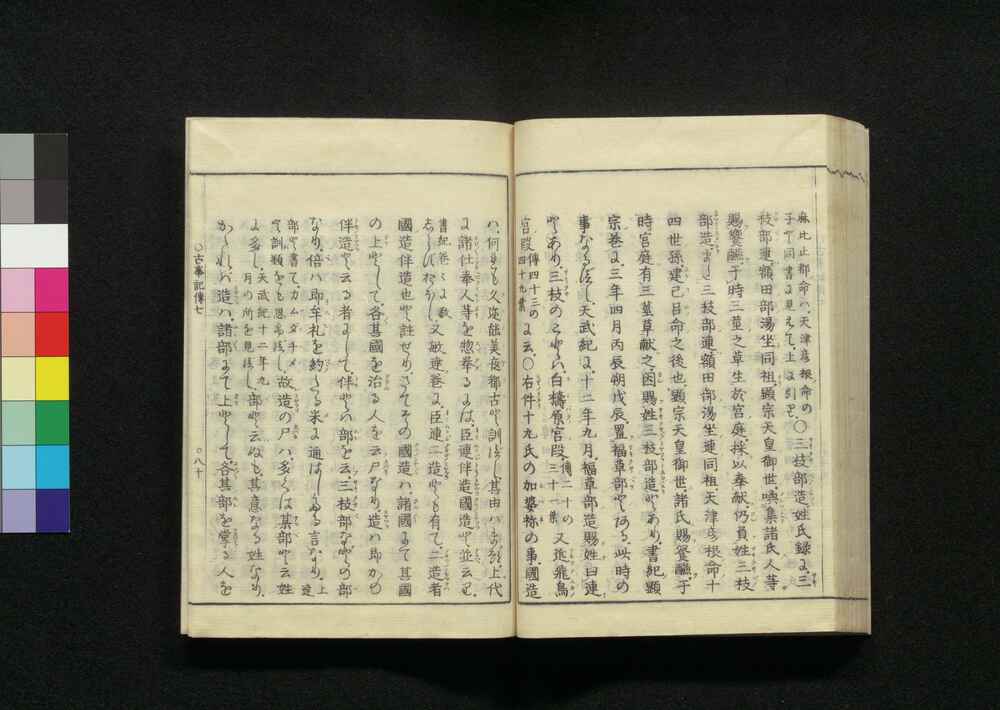 麻比止都命ハ、天津彦根命の
子ぞと同書に見えて、上に引り、○三枝部造、姓氏錄に、三
枝部連、額田部湯坐同祖、顯宗天皇御世、喚集諸氏人等
賜饗醼、于時三莖之草生於宮庭、採以奉獻、仍負姓三枝
部造、また三枝部連、額田部湯坐連同祖、天津彦根命十
四世孫、建己呂命之後也、顯宗天皇御世、諸氏賜饗醼、于
時宮庭有三莖草獻之、因賜姓三枝部造とあり、書紀顯
宗卷に、三年四月丙辰朔戊辰、置福草部とある、此時の
事なるべし、天武紀に、十二年九月、福草部造賜姓曰連
とあり、三枝のことハ、白檮原宮段、傳二十の三十一葉又近飛鳥
宮段傳四十三の四十九葉に云、○右件十九氏の加婆祢の事、國造
ハ、何れも久邇能美夜都古と訓べし、其由ハまづ上代
に諸仕奉人等を惣舉るには、臣連伴造國造と並云り、
書紀卷々に
又敏達卷に、臣連二造とも有て、二造者
國造伴造也と註せり、さてその國造ハ、諸國にて其國
の上として、各其國を治る人を云尸なり、造ハ即かの
伴造と云る者にして、伴とハ部を云、三枝部などの部
なり、
部と書て、カムダチメ
故造の尸ハ多くハ某部と云姓
に多し、天武紀十二年九月の所を見べし、部と云ぬも其意なる姓なり、
かゝれハ造ハ、諸部にて上として、各其部を掌る人を
○古事記傳七
○八十